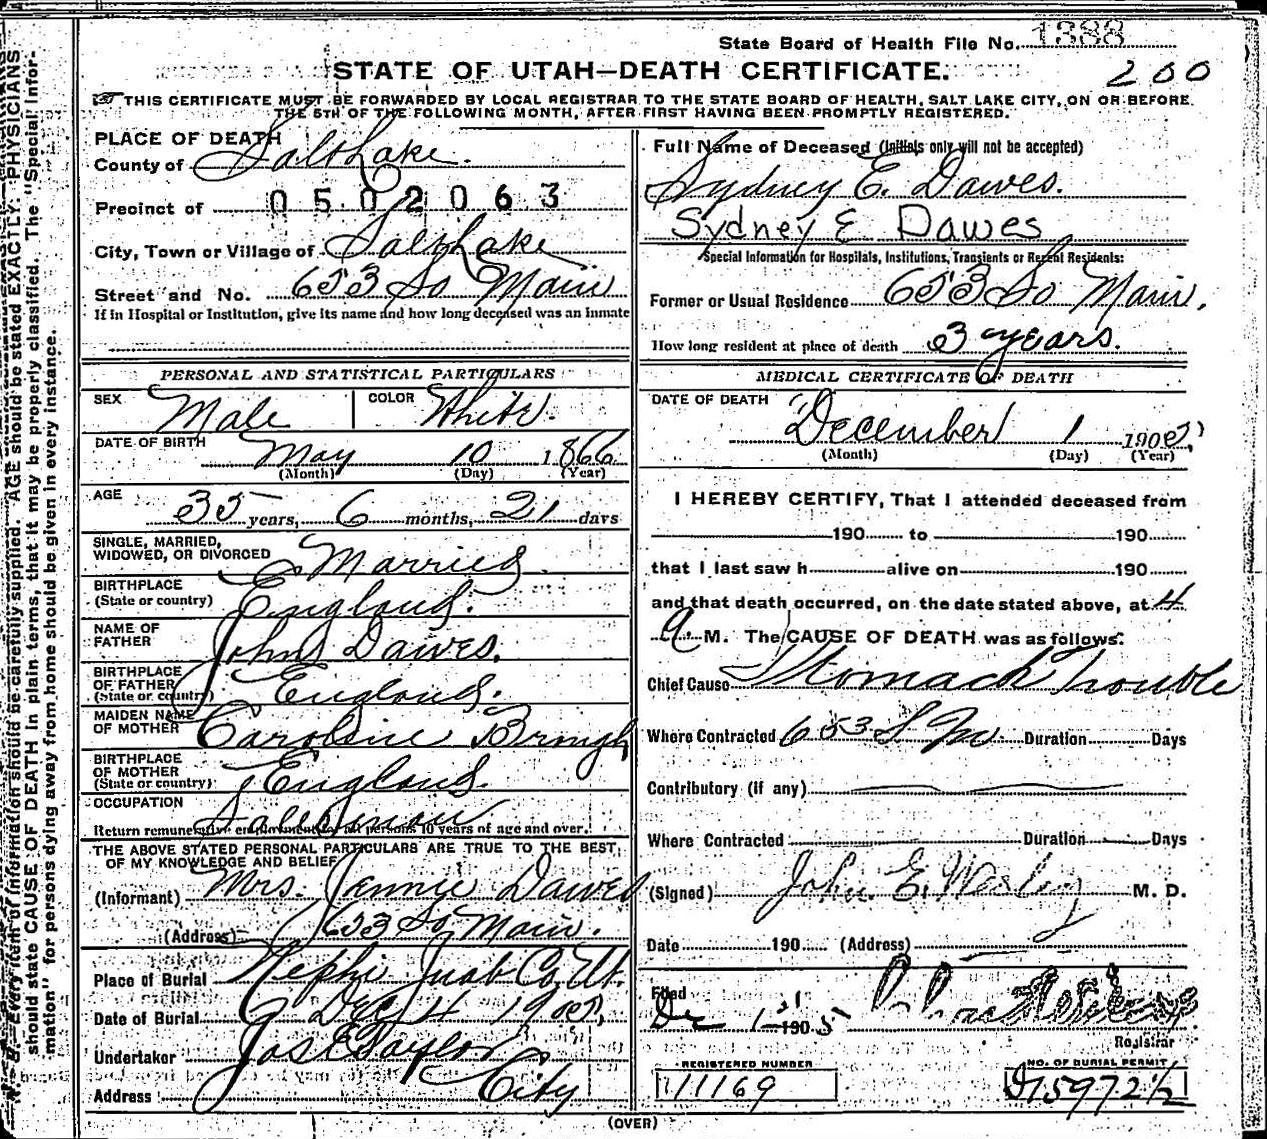 State Board of Health File No. 1388
STATE OF UTAH—DEATH CERTIFICATE.
200
THIS CERTIFICATE MUST BE FORWARDED BY LOCAL REGISTRAR TO THE STATE BOARD OF HEALTH, SALT LAKE CITY, ON OR BEFORE
THE 5TH OF THE FOLLOWING MONTH, AFTER FIRST HAVING BEEN PROMPTLY REGISTERED.
PLACE OF DEATH
County of Salt Lake.
Precinct of 0502063
City, Town or Village of Salt Lake
Street and No. 653 So Main
If in Hospital or Institution, give its name and how long deceased was an inmate
Full Name of Deceased (Initials only will not be accepted)
Sydney E. Dawes.
Sydney E Dawes
Special Information for Hospitals, Institutions, Transients or Recent Residents:
Former or Usual Residence 653 So Main.
How long resident at place of death 3 years.
PERSONAL AND STATISTICAL PARTICULARS
SEX Male
COLOR White.
DATE OF BIRTH May 10 1866
(Month) (Day) (Year)
AGE 35 years, 6 months, 21 days
SINGLE, MARRIED,
WIDOWED, OR DIVORCED Married
BIRTHPLACE
(State or country) England.
NAME OF
FATHER John Dawes.
BIRTHPLACE
OF FATHER
(State or country) England.
MAIDEN NAME
OF MOTHER Caroline Brough
BIRTHPLACE
OF MOTHER
(State or country) England.
OCCUPATION Salesman
Return remunerative employment for all persons 10 years of age and over.
THE ABOVE STATED PERSONAL PARTICULARS ARE TRUE TO THE BEST
OF MY KNOWLEDGE AND BELIEF
(Informant) Mrs. Jennie Dawes
(Address) 653 So Main.
Place of Burial Nephi Juab Co. Ut.
Date of Burial Dec 4 190
Undertaker Jas E Taylor
Address City
MEDICAL CERTIFICATE OF DEATH
DATE OF DEATH December 1 190
(Month) (Day) (Year)
I HEREBY CERTIFY, That I attended deceased from
190 to 190
that I last saw h alive on 190
and that death occurred, on the date stated above, at 4
A. M. The CAUSE OF DEATH was as follows:
Chief Cause Stomach Trouble
Where Contracted 653 S Duration Days
Contributory (if any)
Where Contracted Duration Days
(Signed) John E. Wesley M. D.
Date 190 (Address)
Filed
Dec 1 - 190
Registrar
REGISTERED NUMBER
11169
NO. OF BURIAL PERMIT
D15972½
(OVER)
N. B.—Every item of information should be carefully supplied. AGE should be stated EXACTLY. PHYSICIANS
should state CAUSE OF DEATH in plain terms, that it may be properly classified. The "Special Infor-
mation" for persons dying away from home should be given in every instance.